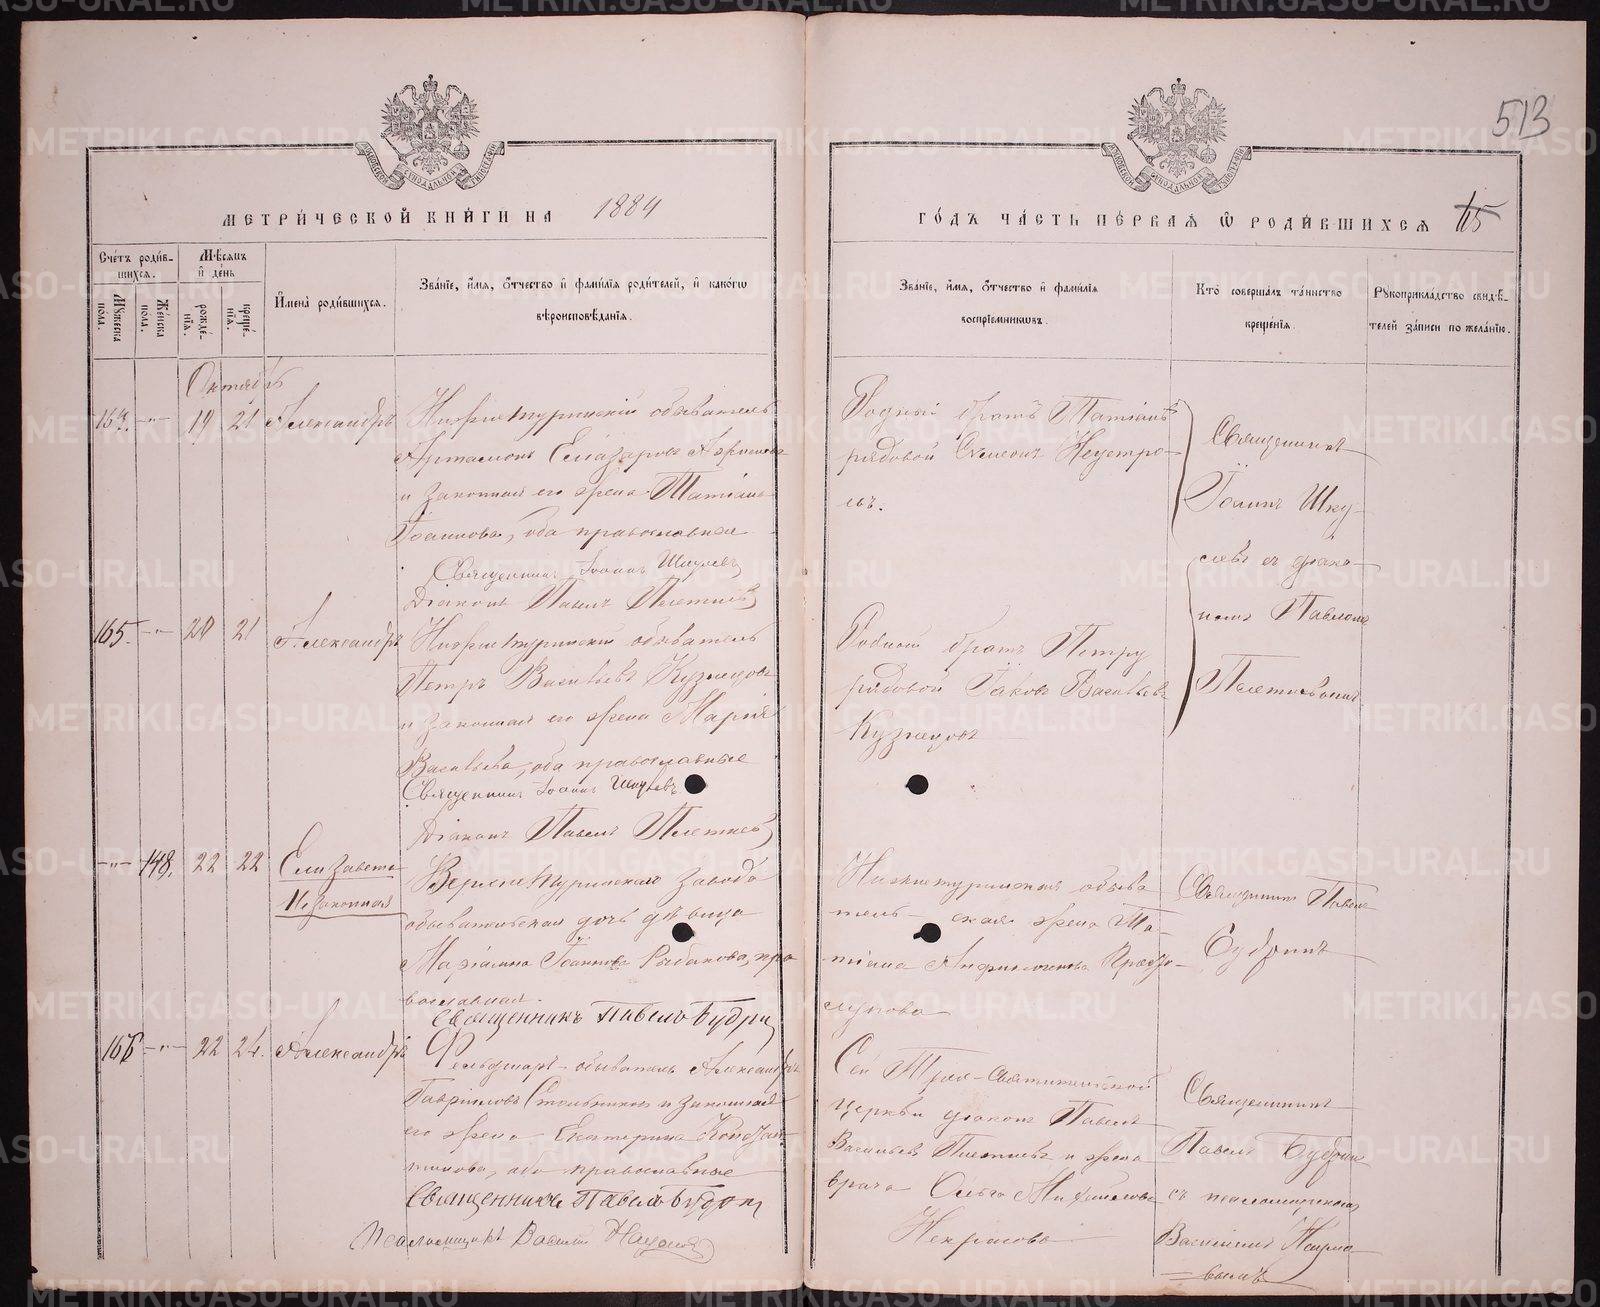 513
МЕТРИ́ЧЕСКОЙ КНИ́ГИ НА 1884
ГО́ДЪ ЧА́СТЬ ПЕ́РВАЯ Ѿ РОДИ́ВШИХСЯ 115
Сче́тъ роди́в-
шихся.
Мѣ́сяцъ
и҆ де́нь
Мꙋ́жеска
по́ла.
Же́нска
по́ла.
рожде́-
нїя.
креще́-
нїя.
И҆мена̀ роди́вшихся.
Зва́нїе, и҆́мя, ѻ҆́тчество и҆ фами́лїя роди́телей, и҆ како́гѡ
вѣроисповѣ́данїя.
Зва́нїе, и҆́мя, ѻ҆́тчество и҆ фами́лїя
воспрїе́мникѡвъ.
Кто̀ соверша́лъ та́инство
креще́нїя.
Рꙋкоприкла́дство свидѣ́-
телей за́писи по жела́нїю.
Октябрь
164. -"- 19 21 Александръ
Нижнетуринскій обыватель
Артамонъ Елiазаровъ
и законная его жена Татiана
Iоаннова, оба православные
Священникъ Iоаннъ
Дiаконъ Павелъ Плетневъ
Родной братъ Татiаны
рядовой Симеонъ Неустро-
евъ.
Священникъ
Iоаннъ Шку-
левъ съ дiако-
номъ Павломъ
Плетневымъ
165. -"- 20 21 Александръ
Нижнетуринскiй обыватель
Петръ Васильевъ Кузнецовъ
и законная его жена Марiя
Васильева, оба православные
Священникъ Iоаннъ
Дiаконъ Павелъ Плетневъ
Родной братъ Петру
рядовой Iаковъ Васильевъ
Кузнецовъ
-"- 148. 22 22 Елизавета
Незаконная
Верхнетуринскаго завода
обывательская дочь дѣвица
Марiамна Iоаннова Рыбакова, пра
вославная.
Священникъ Павелъ Будрин
Нижнетуринскаго обыва
тель- ская жена Та-
тiана
Священникъ Павелъ
Будринъ
166 -"- 22 24. Александръ
Фельдшеръ - обыватель Александръ
Гаврiиловъ и законная
его жена Екатерина Констан
тинова, оба православные
Священникъ Павелъ Будрин
Псаломщикъ Василiй
Сей Трех-Святительской
церкви дiаконъ Павелъ
Васильевъ Плетневъ и жена
врача Ольга Михайлова
Некрасова
Священникъ
Павелъ Будрин
съ псаломщикомъ
Василiемъ
METRIKI.GASO-URAL.RU